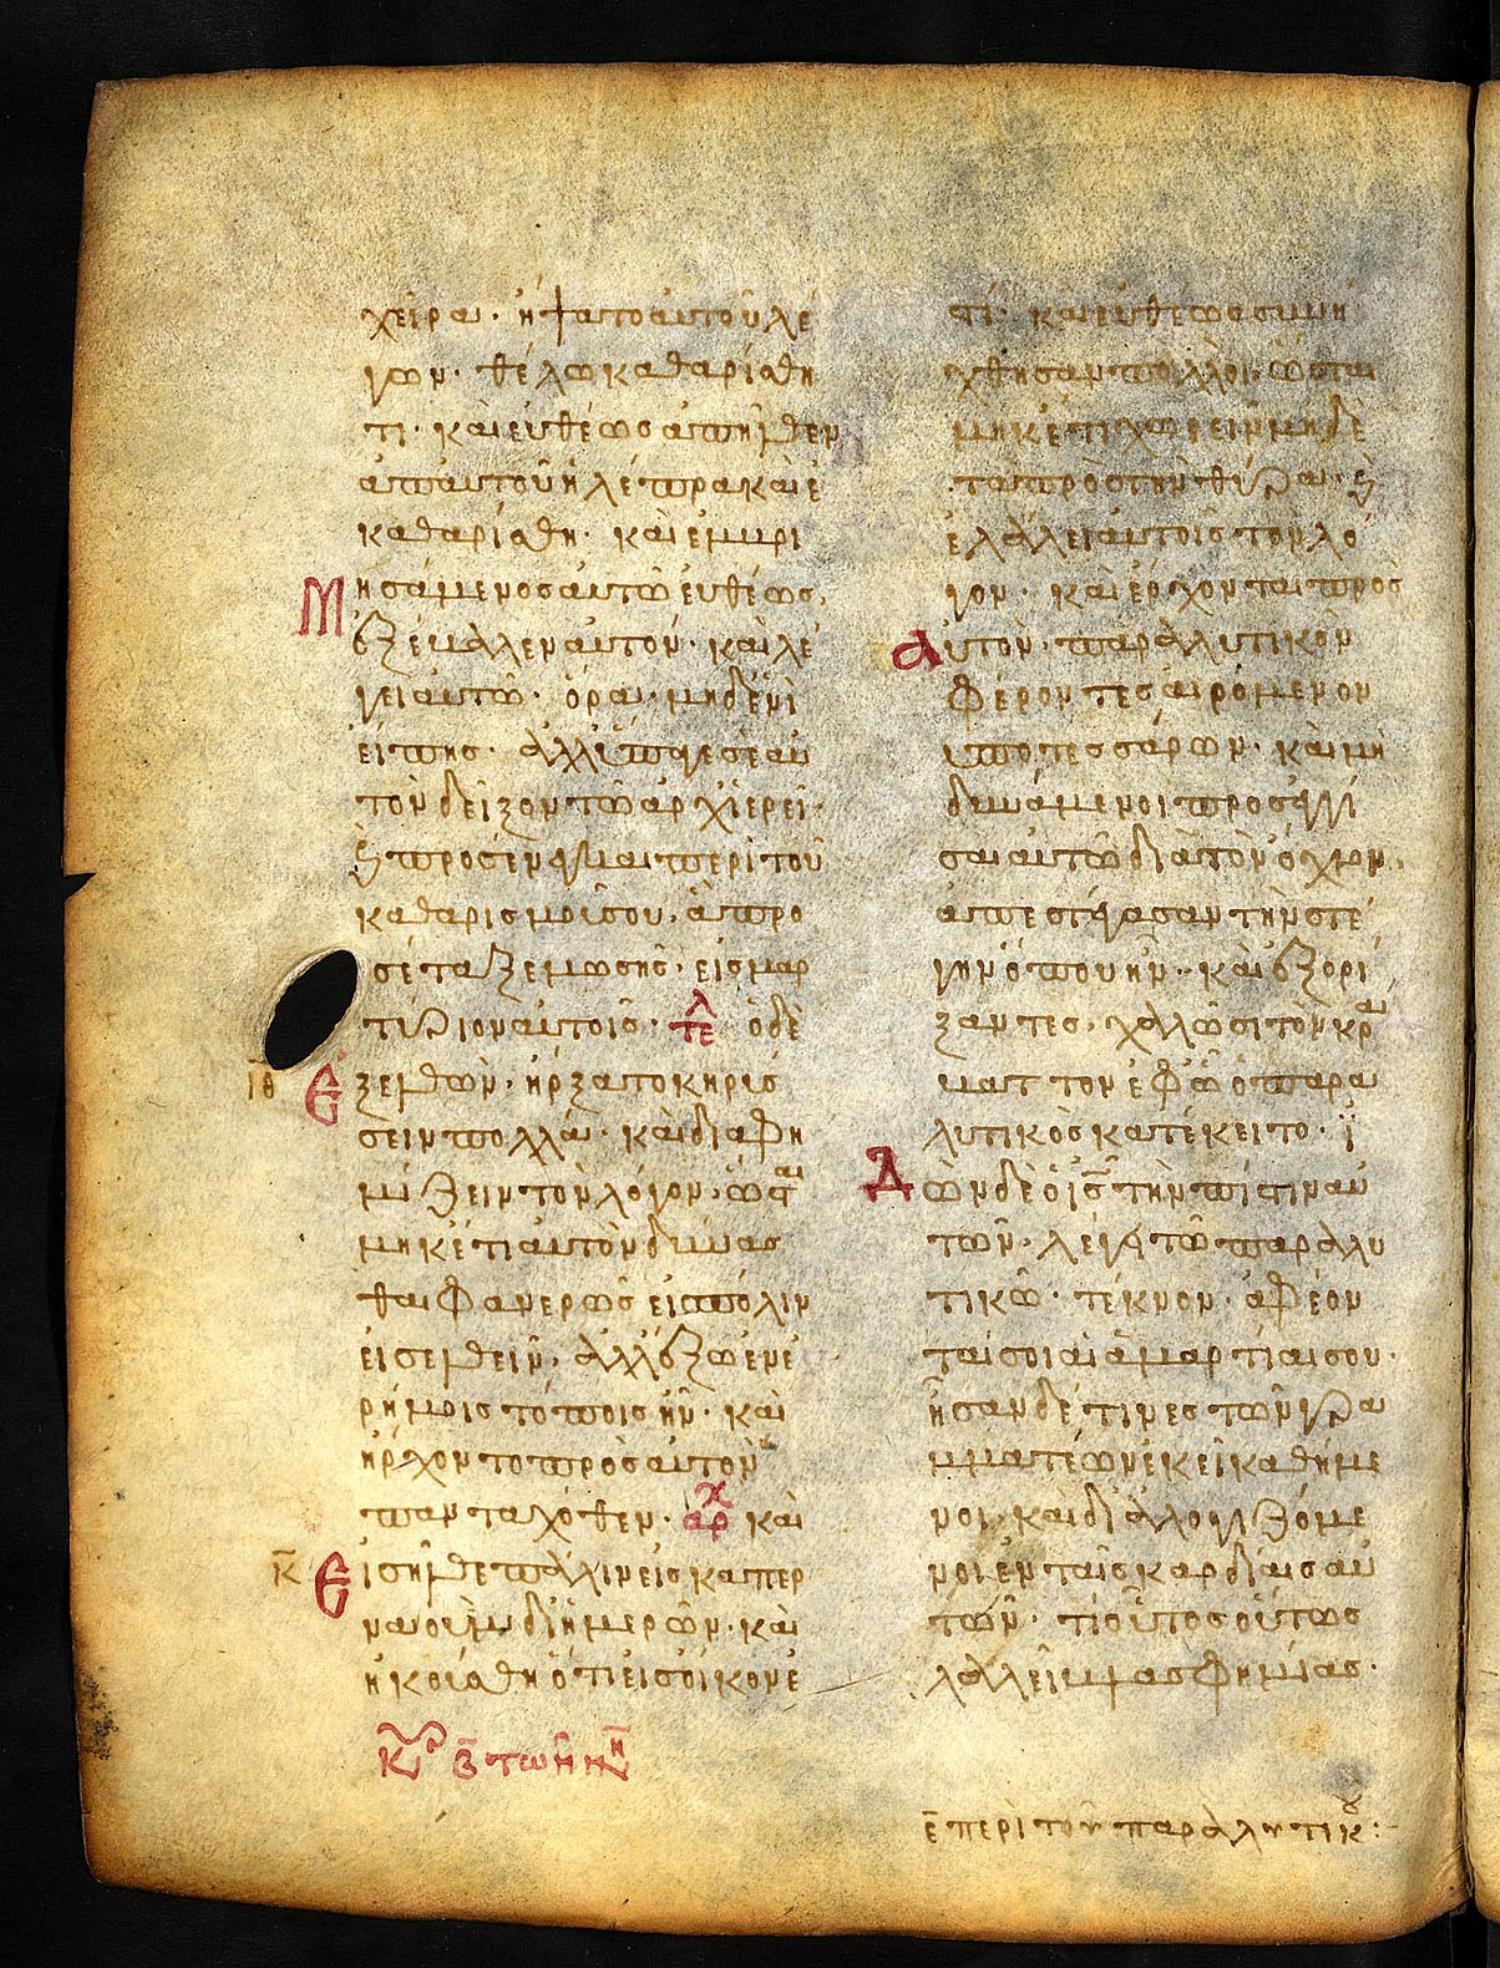 χεῖρα· ἥψατο αὐτοῦ λέ
γων· θέλω καθαρίσθη
τι· καὶ εὐθέως ἀπῆλθεν
ἀπ αὐτοῦ ἡ λέπρα καὶ ἐ
καθαρίσθη· καὶ ἐμβρι
Μ ησάμενος αὐτῶ εὐθέως,
ἐξέβαλεν αὐτόν· καὶ λέ
γει αὐτῶ· ὅρα· μηδενὶ
εἴπης· ἀλλ ὕπαγε σεαυ
τὸν δεῖξον τῶ ἀρχιερεῖ·
ϗ προσένεγκαι περὶ τοῦ
καθαρισμοῦ σου, ἃ προ
σέταξε μωσῆς· εἰς μαρ
τύριον αὐτοῖς· τε̅λ ὁ δὲ
ιθ Ἐ ξελθὼν, ἤρξατο κηρύσ
σειν πολλὰ· καὶ διαφη
μίζειν τὸν λόγον, ὥσται
μηκέτι αὐτὸν δύνασ
θαι φανερῶς εἰς πόλιν
εἰσελθεῖν, ἀλλ ἔξω ἐν ἐ
ρήμοις τόποις ἦν· καὶ
ἤρχοντο πρὸς αὐτὸν
πανταχόθεν· αρχ καὶ
κ̅ Ε ἰσῆλθε πάλιν εἰς καπερ
ναοὺμ δι ἡμερῶν· καὶ
ἠκούσθη ὅτι εἰς οἶκον ἐ
στί· καὶ εὐθέως συνή
χθησαν πολλοὶ, ὥσται
μηκέτι χωρεῖν μηδὲ
τὰ πρὸς τὴν θύραν· ϗ
ἐλάλει αὐτοῖς τὸν λό
γον· καὶ ἔρχονται πρὸς
α ὐτὸν, παραλυτικὸν
φέροντες αἰρόμενον
ὑπο τεσσάρων· καὶ μὴ
δυνάμενοι προσεγγί
σαι αὐτῶ διὰ τὸν ὄχλον,
ἀπεστέγασαν τὴν στέ
γην ὅπου ἦν· καὶ ἐξορύ
ξαντες, χαλῶσι τὸν κρα
βαττον ἐφ ὧ ὁ παρα
λυτικὸς κατέκειτο· ἰ
Δ ὼν δὲ ὁ ι̅ς̅ τὴν πίστιν αυ
τῶν, λέγει τῶ παραλυ
τικῶ· τέκνον· ἀφέον
ταί σοι αἱ ἁμαρτίαι σου·
ἦσαν δέ τινες τῶν γρα
μματέων ἐκεῖ καθήμε
νοι· καὶ διαλογιζόμε
νοι ἐν ταῖς καρδίαις αυ
τῶν· τί οὗτος οὕτως
λαλλεῖ βλασφημίας·
β̅ τῶν ν
ε̅ περὶ τοῦ παραλυτικου: